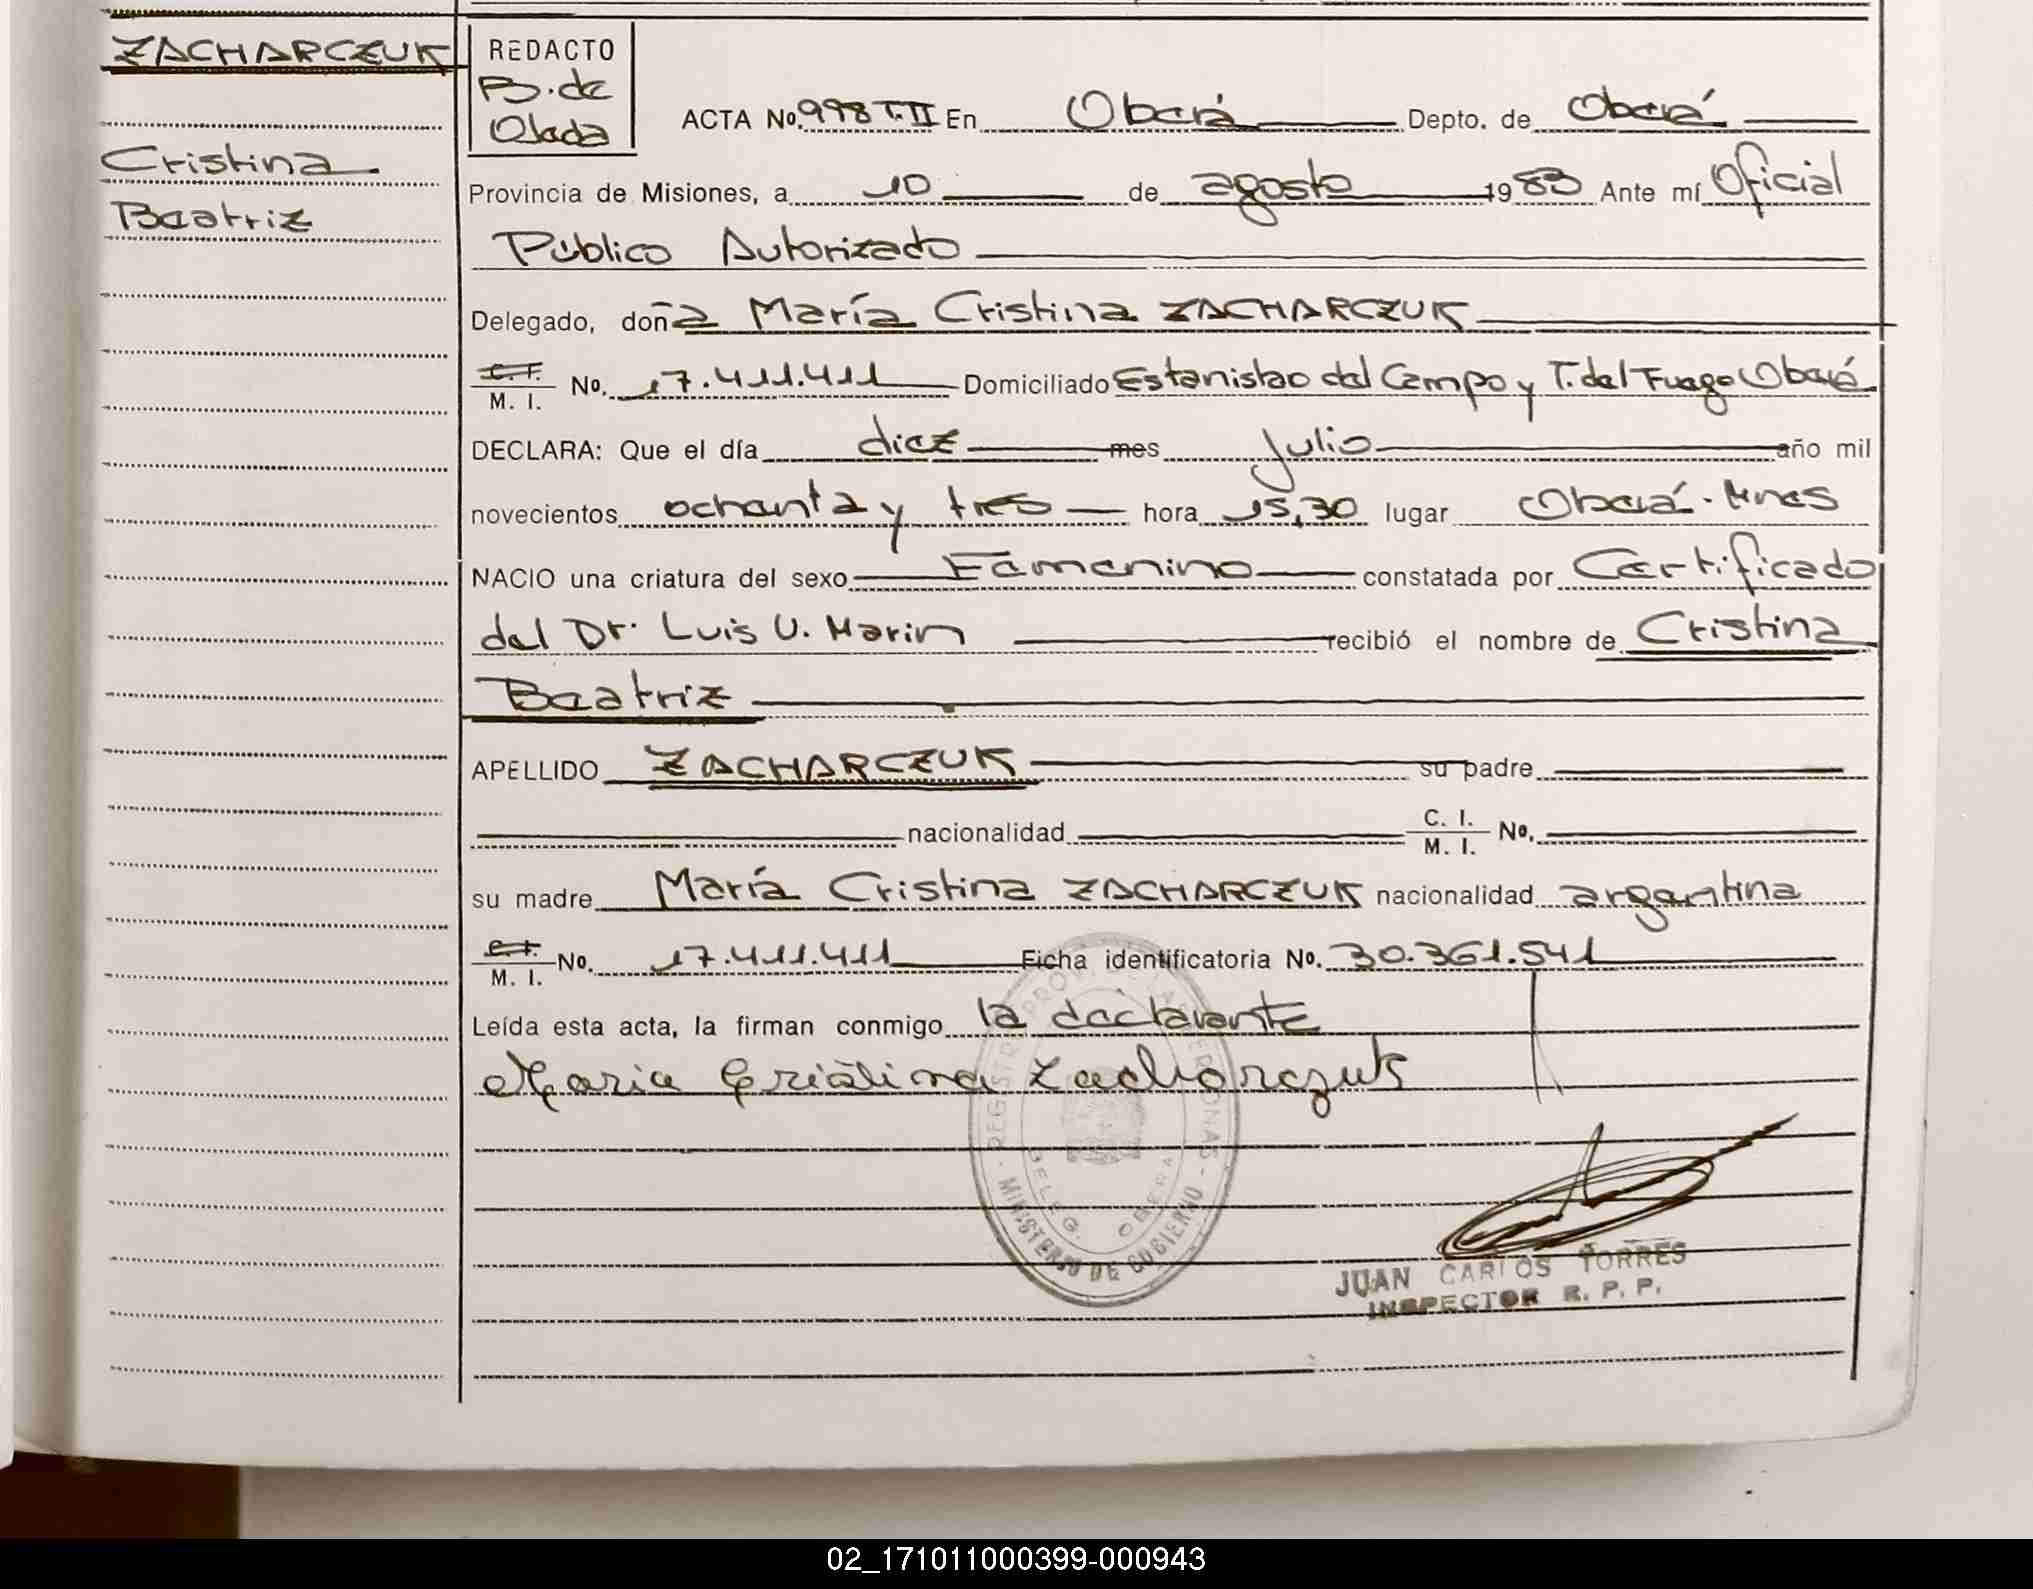 ZACHARCZUK
Cristina
Beatriz
REDACTO
B. de
Olada
ACTA No. 998 T.II En Oberá Depto. de Oberá
Provincia de Misiones, a 10 de agosto 1983 Ante mí Oficial
Público Autorizado
Delegado, doña María Cristina ZACHARCZUK
C. I.
M. I. No. 17.411.411 Domiciliado Estanislao del Campo y T. del Fuego Oberá
DECLARA: Que el día diez mes julio año mil
novecientos ochenta y tres hora 15,30 lugar Oberá - Mnes
NACIO una criatura del sexo Femenino constatada por Certificado
del Dr. Luis U. Marin recibió el nombre de Cristina
Beatriz
APELLIDO ZACHARCZUK su padre
nacionalidad C. I. M. I. No.
su madre María Cristina ZACHARCZUK nacionalidad argentina
C. I.
M. I. No. 17.411.411 Ficha identificatoria No. 30.361.541
Leída esta acta, la firman conmigo la declarante
Maria Cristina Zacharczuk
REGISTRO PROV. DE LAS PERSONAS - MINISTERIO DE GOBIERNO
DELEG. OBERA
JUAN CARLOS TORRES
INSPECTOR R. P. P.
02_171011000399-000943